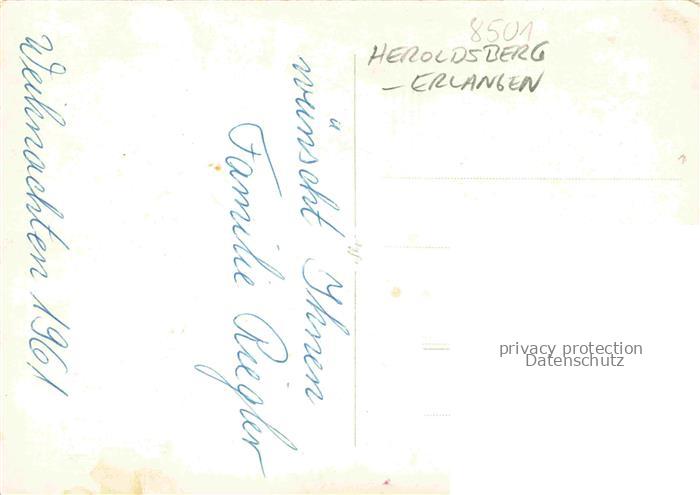 8501
HEROLDSBERG
- ERLANGEN
wünscht Ihnen
Familie Riegler
Weihnachten 1961
privacy protection
Datenschutz